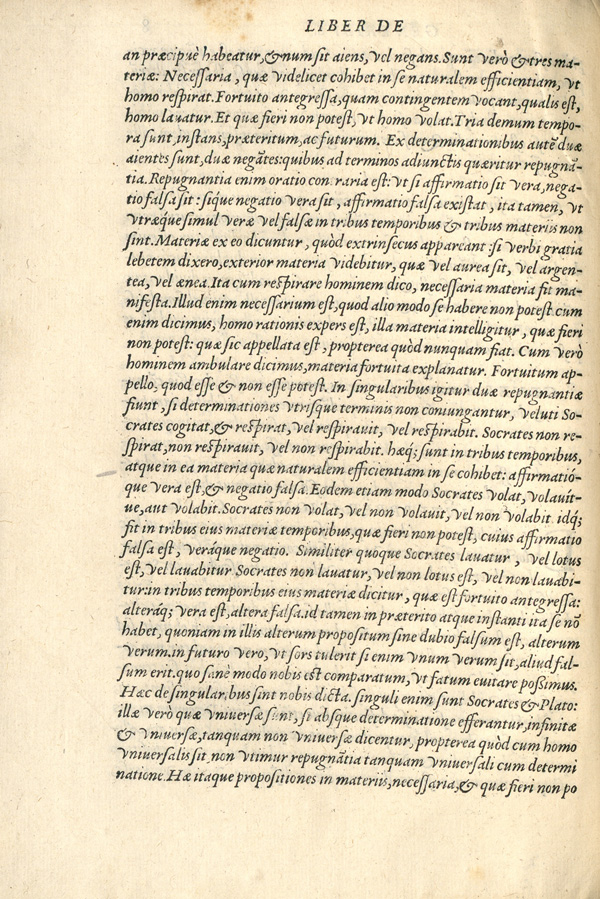 LIBER DE
an præcipuè habeatur, & num sit aiens, vel negans. Sunt verò & tres ma-
teriæ: Necessaria, quæ videlicet cohibet in se naturalem efficientiam, vt
homo respirat. Fortuito antegressa, quam contingentem vocant, qualis est,
homo lauatur. Et quæ fieri non potest, vt homo volat. Tria demum tempo-
ra sunt, instans, præteritum, ac futurum. Ex determinationibus autē duæ
aientes sunt, duæ negātes: quibus ad terminos adiunctis quæritur repugnā-
tia. Repugnantia enim oratio con raria est: vt si affirmatio sit vera, nega-
tio falsa sit: siq́ue negatio vera sit, affirmatio falsa existat, ita tamen, vt
vtræque simul veræ vel falsæ in tribus temporibus & tribus materiis non
sint. Materiæ ex eo dicuntur, quòd extrinsecus appareant: si verbi gratia
lebetem dixero, exterior materia videbitur, quæ vel aurea sit, vel argen-
tea, vel ænea. Ita cum respirare hominem dico, necessaria materia fit ma-
nifesta. Illud enim necessarium est, quod alio modo se habere non potest. cum
enim dicimus, homo rationis expers est, illa materia intelligitur, quæ fieri
non potest: quæ sic appellata est, propterea quòd nunquam fiat. Cum verò
hominem ambulare dicimus, materia fortuita explanatur. Fortuitum ap-
pello, quod esse & non esse potest. In singularibus igitur duæ repugnantiæ
fiunt, si determinationes vtrisque terminis non coniungantur, veluti So-
crates cogitat, & respirat, vel respirauit, vel respirabit. Socrates non re-
spirat, non respirauit, vel non respirabit. hæq; sunt in tribus temporibus,
atque in ea materia quæ naturalem efficientiam in se cohibet: affirmatió-
que vera est, & negatio falsa. Eodem etiam modo Socrates volat, volauít-
ue, aut volabit. Socrates non volat, vel non volauit, vel non volabit. idq;
fit in tribus eius materiæ temporibus, quæ fieri non potest, cuius affirmatio
falsa est, veráque negatio. Similiter quoque Socrates lauatur, vel lotus
est, vel lauabitur Socrates non lauatur, vel non lotus est, vel non lauabi-
tur: in tribus temporibus eius materiæ dicitur, quæ est fortuito antegressa:
alteráq; vera est, altera falsa. id tamen in præterito atque instanti ita se nō
habet, quoniam in illis alterum propositum sine dubio falsum est, alterum
verum. in futuro vero, vt sors tulerit si enim vnum verum sit, aliud fal-
sum erit. quo sanè modo nobis est comparatum, vt fatum euitare poßimus.
Hæc de singular bus sint nobis dicta. singuli enim sunt Socrates & Plato:
illæ verò quæ vniuersæ sunt, si absque determinatione efferantur, infinitæ
& vniuersæ, tanquam non vniuersæ dicentur, propterea quòd cum homo
vniuersalis sit, non vtimur repugnātia tanquam vniuersali cum determi
natione. Hæ itaque propositiones in materiis, necessaria, & quæ fieri non po